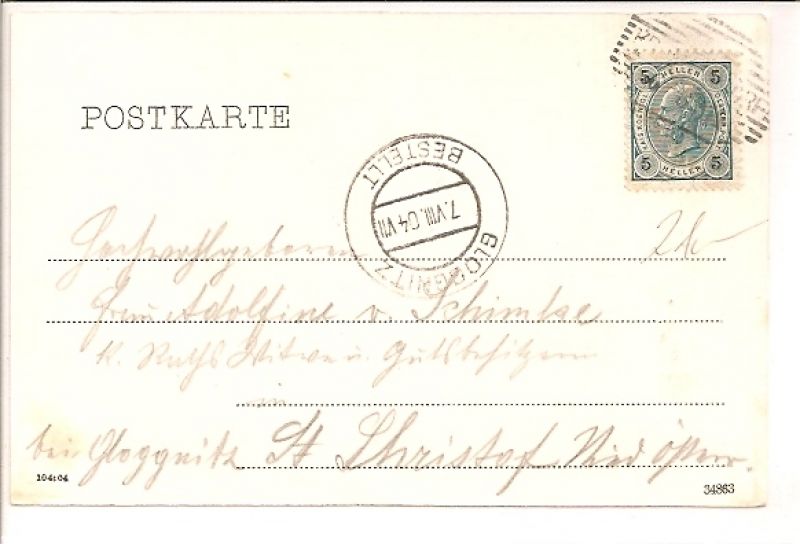 POSTKARTE
5 HELLER 5
5 HELLER 5
BESTELLT
7.VIII.04 VII
GLOGGNITZ
Hochwohlgeboren
Frau Adolfine v. Schimke
K. Raths Witwe u. Gutsbesitzerin
in
bei Gloggnitz St Christof Nied Österr.
104:04
34863